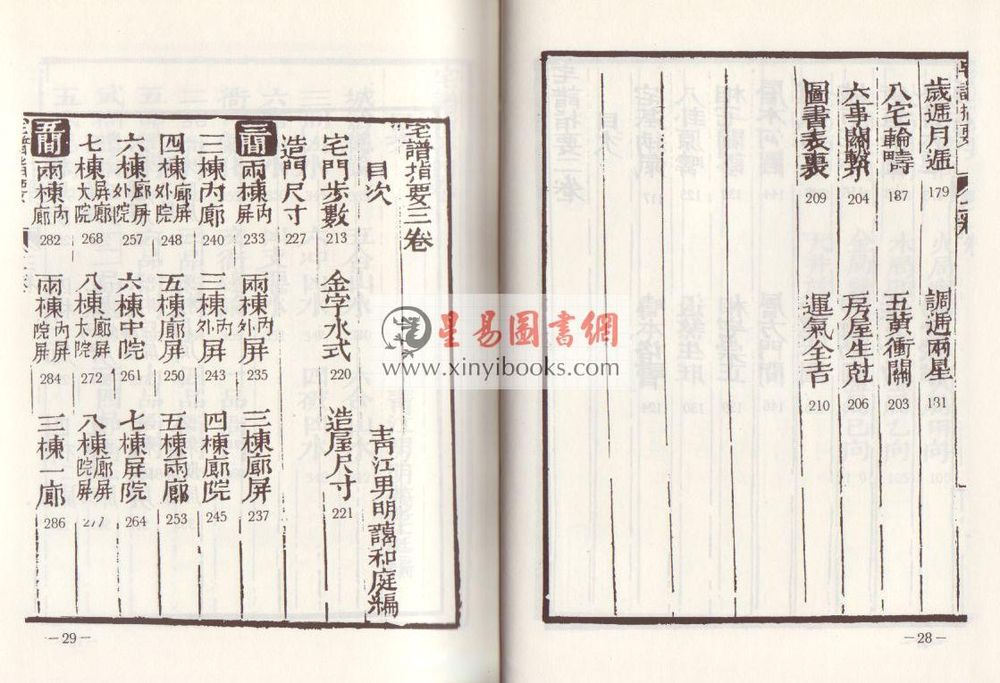 歲遞月遞 179 調遞兩星 181
八宅輪疇 187 五黃衝關 203
六事關繫 204 房屋生尅 206
圖書表裏 209 運氣全吉 210
－28－
宅譜指要三卷
目次 青江男明謁和庭編
宅門步數 213 金字水式 220 造屋尺寸 221
造門尺寸 227
三間 兩棟內屏 233 兩棟內外屏 235 三棟廊屏 237
三棟內廊 240 三棟內外屏 243 四棟廊院 245
四棟廊屏外院 248 五棟廊屏 250 五棟兩廊 253
六棟廊屏外院 257 六棟中院 261 七棟屏院 264
七棟屏廊大院 268 八棟廊屏大院 272 八棟廊屏院 277
五間 兩棟內廊 282 兩棟內屏院屏 284 三棟一廊 286
－29－
星易圖書網
www.xinyibooks.com